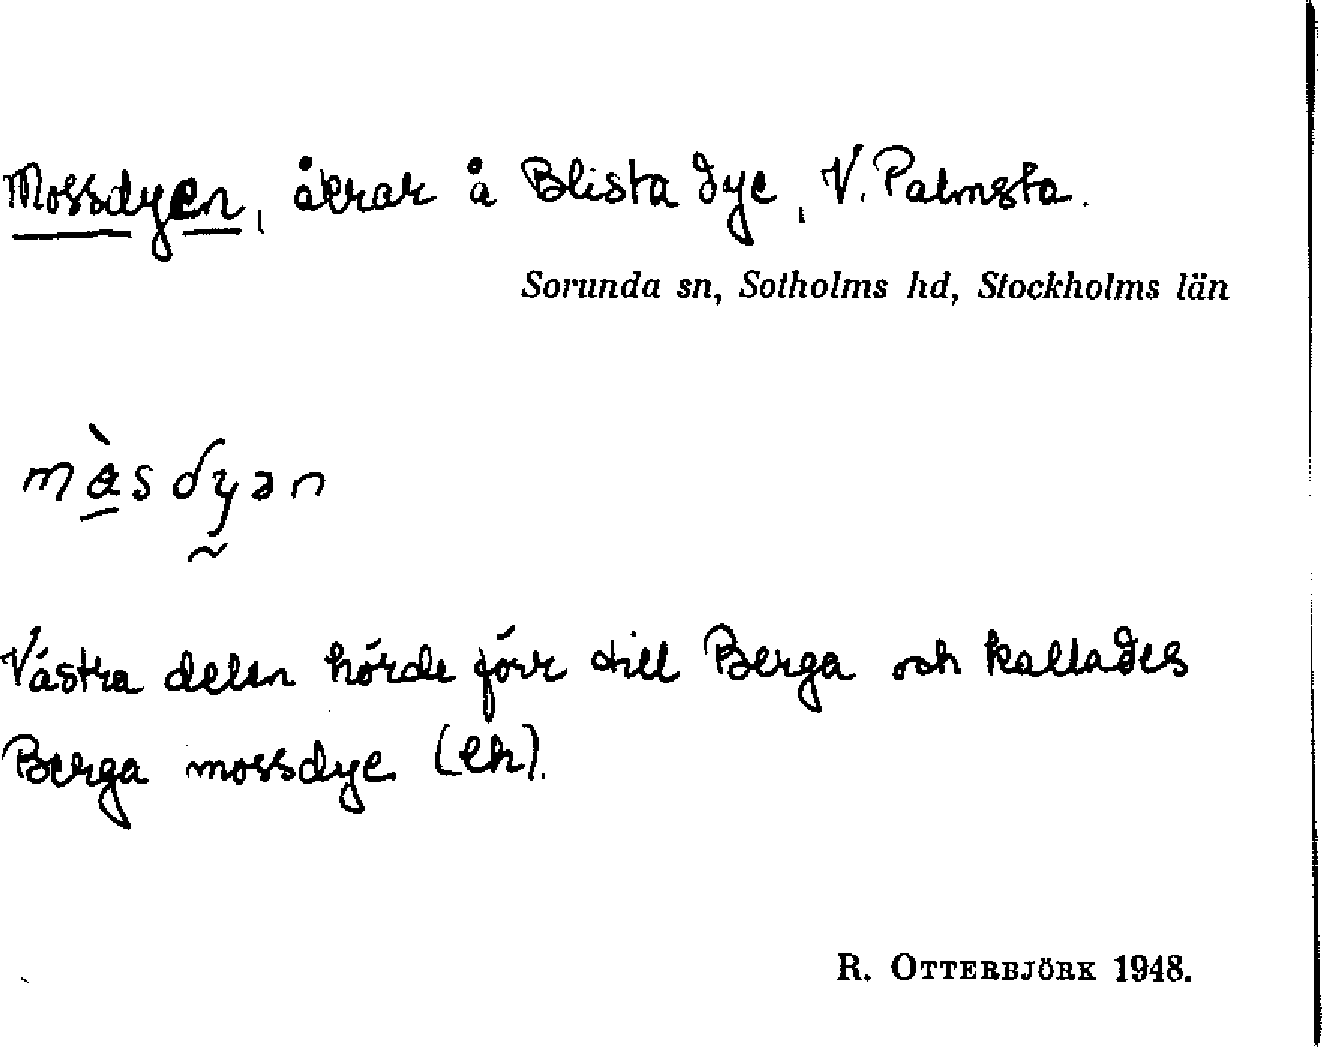 Mossdyen, åkrar å Blista dye, V. Palmsta.
Sorunda sn, Sotholms hd, Stockholms län
màsdyən
Västra delen hörde förr till Berga och kallades
Berga mossdye (ek).
R. OTTERBJÖRK 1948.